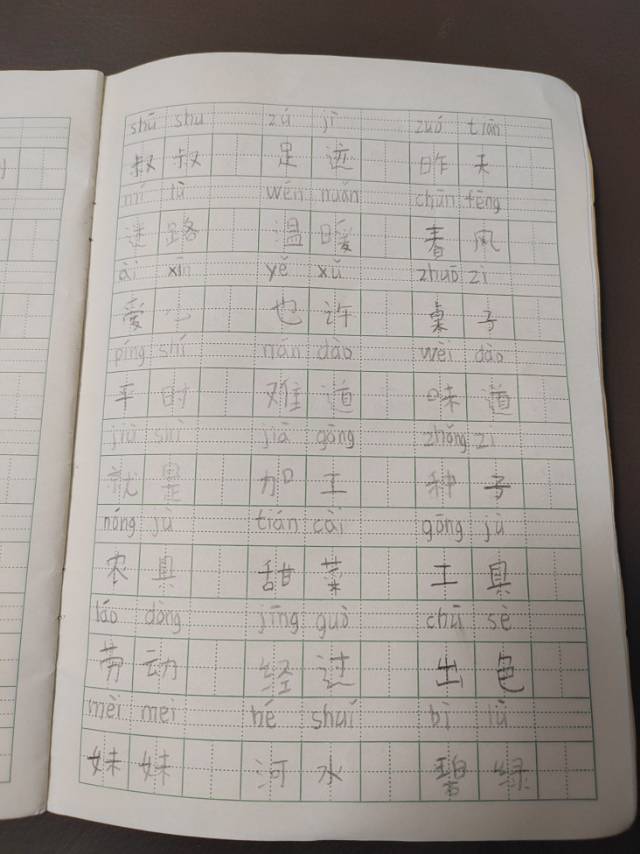 shū shu zú jì zuó tiān
叔叔 足迹 昨天
mí lù wēn nuǎn chūn fēng
迷路 温暖 春风
ài xīn yě xǔ zhuō zi
爱心 也许 桌子
píng shí nán dào wèi dào
平时 难道 味道
jiù shì jiā gōng zhǒng zi
就是 加工 种子
nóng jù tián cài gōng jù
农具 甜菜 工具
láo dòng jīng guò chū sè
劳动 经过 出色
mèi mei hé shuǐ bì lǜ
妹妹 河水 碧绿